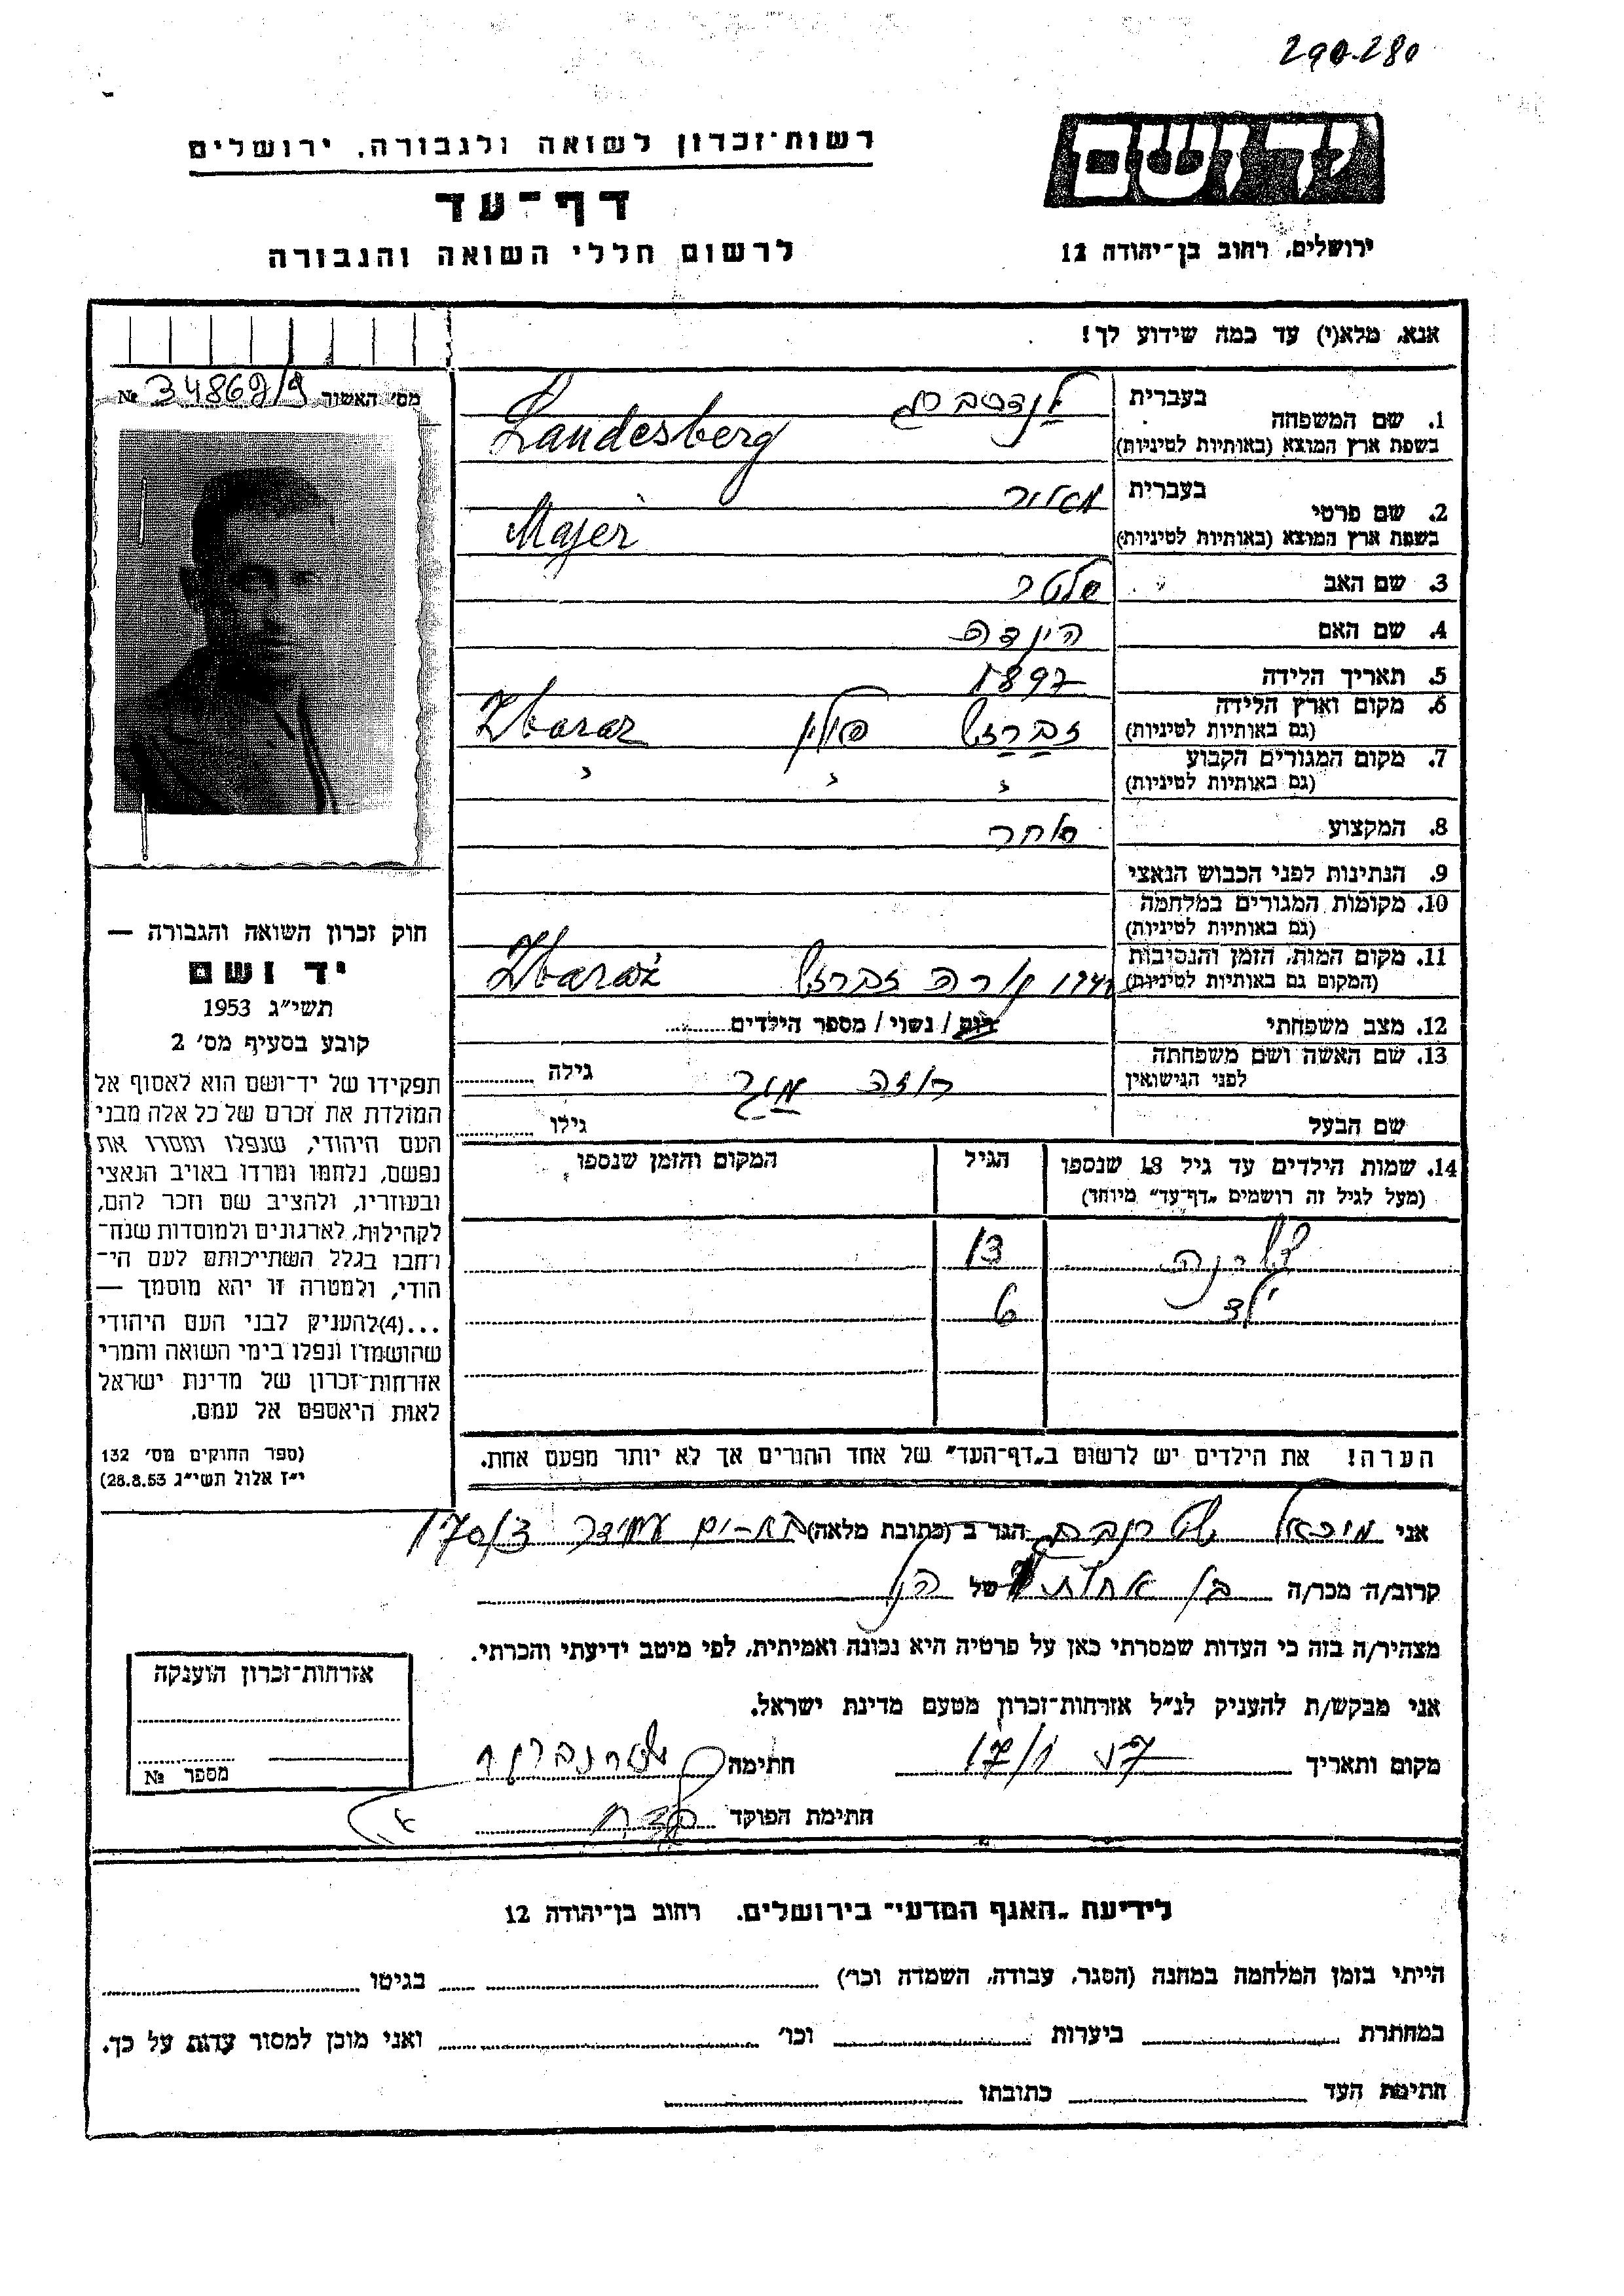 290.280
יד ושם
רשות־זכרון לשואה ולגבורה, ירושלים
דף־עד
לרשום חללי השואה והגבורה
ירושלים, רחוב בן־יהודה 12
אנא, מלא(י) עד כמה שידוע לך!
מס׳ האשור 34869/9 №
1. שם המשפחה
בעברית לנדסברג
בשפת ארץ המוצא (באותיות לטיניות) Landesberg
2. שם פרטי
בעברית מאיר
בשפת ארץ המוצא (באותיות לטיניות) Majer
3. שם האב
4. שם האם הינדה
5. תאריך הלידה 1897
6. מקום וארץ הלידה
(גם באותיות לטיניות) זברז׳ פולין Zbaraz
7. מקום המגורים הקבוע
(גם באותיות לטיניות) " " "
8. המקצוע סוחר
9. הנתינות לפני הכבוש הנאצי
10. מקומות המגורים במלחמה
(גם באותיות לטיניות)
11. מקום המות, הזמן והנסיבות
(המקום גם באותיות לטיניות) זברז׳ Zbaraż
12. מצב משפחתי רווק / נשוי / מספר הילדים
13. שם האשה ושם משפחתה
לפני הנישואין רוזה גילה
שם הבעל גילו
14. שמות הילדים עד גיל 18 שנספו הגיל המקום והזמן שנספו
(מעל לגיל זה רושמים „דף־עד״ מיוחד)
13
ילד 6
הערה! את הילדים יש לרשום ב„דף־העד״ של אחד ההורים אך לא יותר מפעם אחת.
חוק זכרון השואה והגבורה —
יד ושם
תשי״ג 1953
קובע בסעיף מס׳ 2
תפקידו של יד־ושם הוא לאסוף אל
המולדת את זכרם של כל אלה מבני
העם היהודי, שנפלו ומסרו את
נפשם, נלחמו ומרדו באויב הנאצי
ובעוזריו, ולהציב שם וזכר להם,
לקהילות, לארגונים ולמוסדות שנח־
רחבו בגלל השתייכותם לעם הי־
הודי, ולמטרה זו יהא מוסמך —
...(4) להעניק לבני העם היהודי
שהושמדו ונפלו בימי השואה והמרי
אזרחות־זכרון של מדינת ישראל
לאות היאספם אל עמם.
(ספר החוקים מס׳ 132
י״ז אלול תשי״ג 28.8.53)
אני מיכאל שטרנברג הגר ב (כתובת מלאה) בת-ים עמידר 170/3
קרוב/ה מכר/ה בן אחות של הנ״ל
מצהיר/ה בזה כי העדות שמסרתי כאן על פרטיה היא נכונה ואמיתית, לפי מיטב ידיעתי והכרתי.
אני מבקש/ת להעניק לנ״ל אזרחות־זכרון מטעם מדינת ישראל.
מקום ותאריך חתימה
חתימת הפוקד
אזרחות־זכרון הוענקה
מספר №
לידיעת „האגף המדעי״ בירושלים. רחוב בן־יהודה 12
הייתי בזמן המלחמה במחנה (הסגר, עבודה, השמדה וכו׳) בגיטו
במחתרת ביערות וכו׳ ואני מוכן למסור עדות על כך.
חתימת העד כתובתו